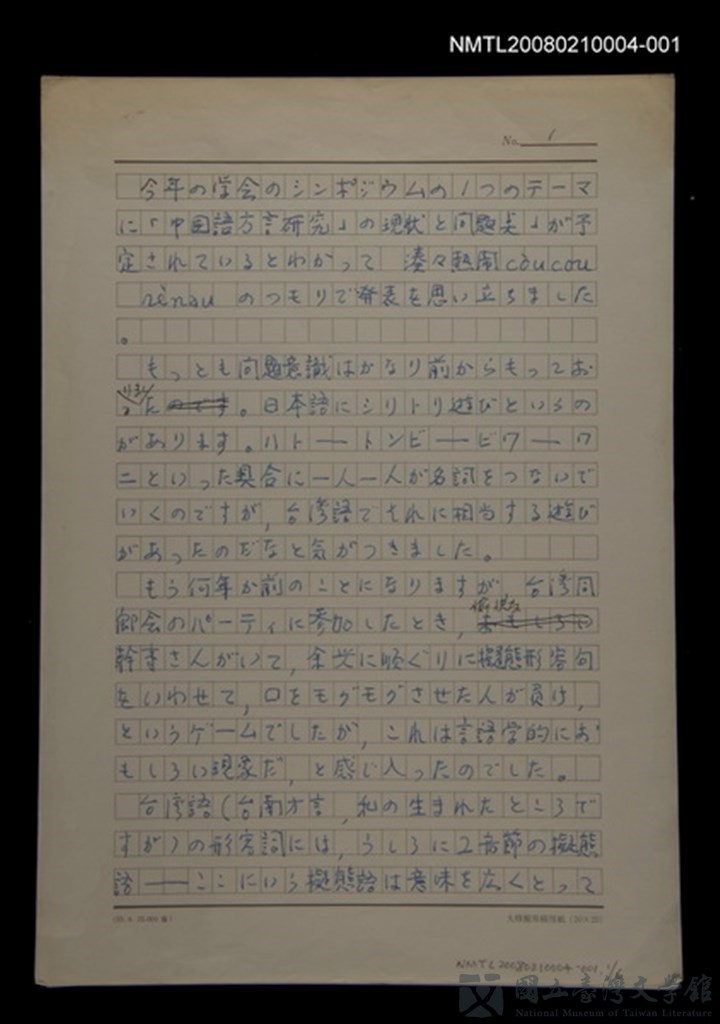 NMTL20080210004-001
No. 1
今年の学会のシンポジウムの1つのテーマ
に「中国語方言研究」の現状と問題点」が予
定されているとわかって 湊々熱鬧còucou
rènau のつもりで発表を思い立ちました
。
もっとも問題意識はかなり前からもってお
りまし
た のです。日本語にシリトリ遊びというの
があります。ハト――トンビ――ビワ――ワ
ニといった具合に一人一人が名詞をつないで
いくのですが,台湾語でそれに相当する遊び
があったのだなと気がつきました。
もう何年か前のことになりますが,台湾同
郷会のパーティに参加したとき,おもしろい
幹事さんがいて,余興に順ぐりに擬態形容句
をいわせて,口をモグモグさせた人が負け,
というゲームでしたが,これは言語学的にお
もしろい現象だ,と感じ入ったのでした。
台湾語(台南方言,私の生まれたところで
すが)の形容詞には,うしろに2音節の擬態
語――ここにいう擬態語は意味を広くとって
NMTL20080210004-001
國立臺灣文學館
National Museum of Taiwan Literature